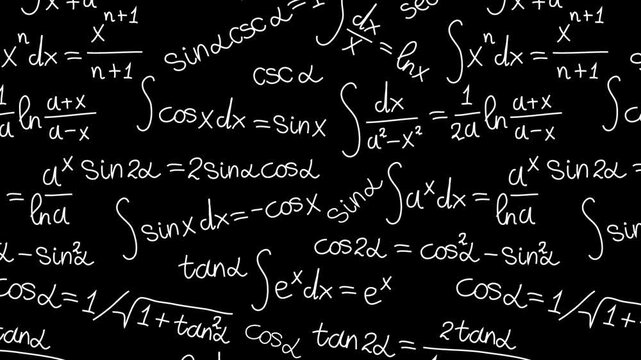 ∫x+a
x^n dx = x^(n+1)/(n+1)
sinα cscα = 1
∫dx/x = lnx
sec
∫x^n dx = x^(n+1)/(n+1)
cscα
1/a ln (a+x)/(a-x)
∫cosxdx = sinx
∫dx/(a²-x²) = 1/2a ln (a+x)/(a-x)
∫c
= a^x/lna
sin2α = 2sinα cosα
sinα
∫a^x dx = a^x/lna
sin2α =
∫sinxdx = -cosx
∫sin
α - sin²α
cos2α = cos²α - sin²α
tanα
∫e^x dx = e^x
cosα = 1/√(1+tan²α)
cosα = 1/√(1+
tanα
cosα
tan2α = 2tanα
tanα